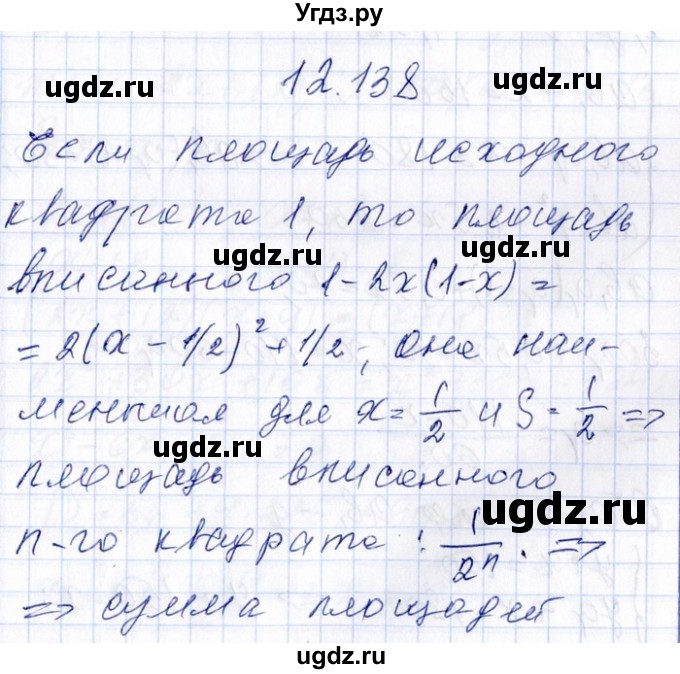 Угдз.ру
ugdz.ru ugdz.ru
12.138
Если площадь исходного
квадрата 1, то площадь
ugdz.ru ugdz.ru
вписанного 1-2x(1-x) =
= 2(x - 1/2)² + 1/2 ; она наи-
ugdz.ru
меньшая для x = 1/2 и S = 1/2 =>
ugdz.ru ugdz.ru
площадь вписанного
n-го квадрата : 1/2ⁿ. =>
ugdz.ru
=> сумма площадей
ugdz.ru ugdz.ru
ugdz.ru